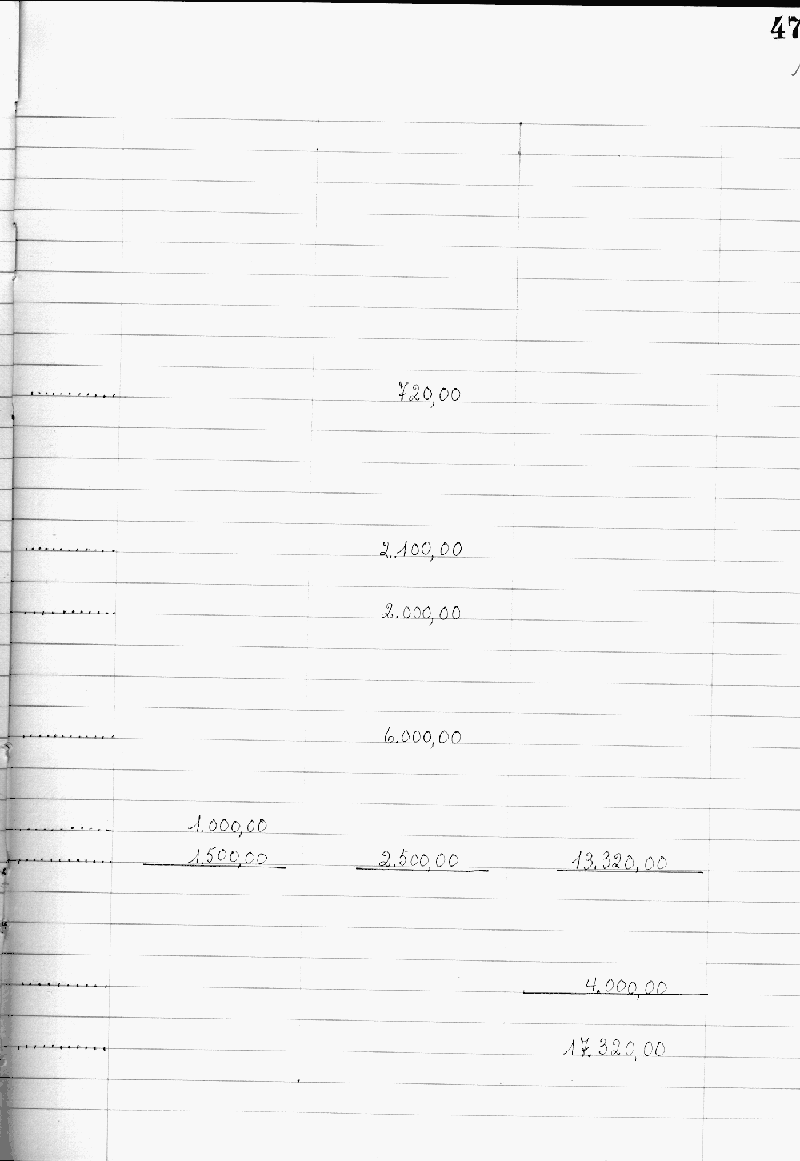 47
720,00
2.100,00
2.000,00
6.000,00
1.000,00
1.500,00 2.500,00 13.320,00
4.000,00
17.320,00